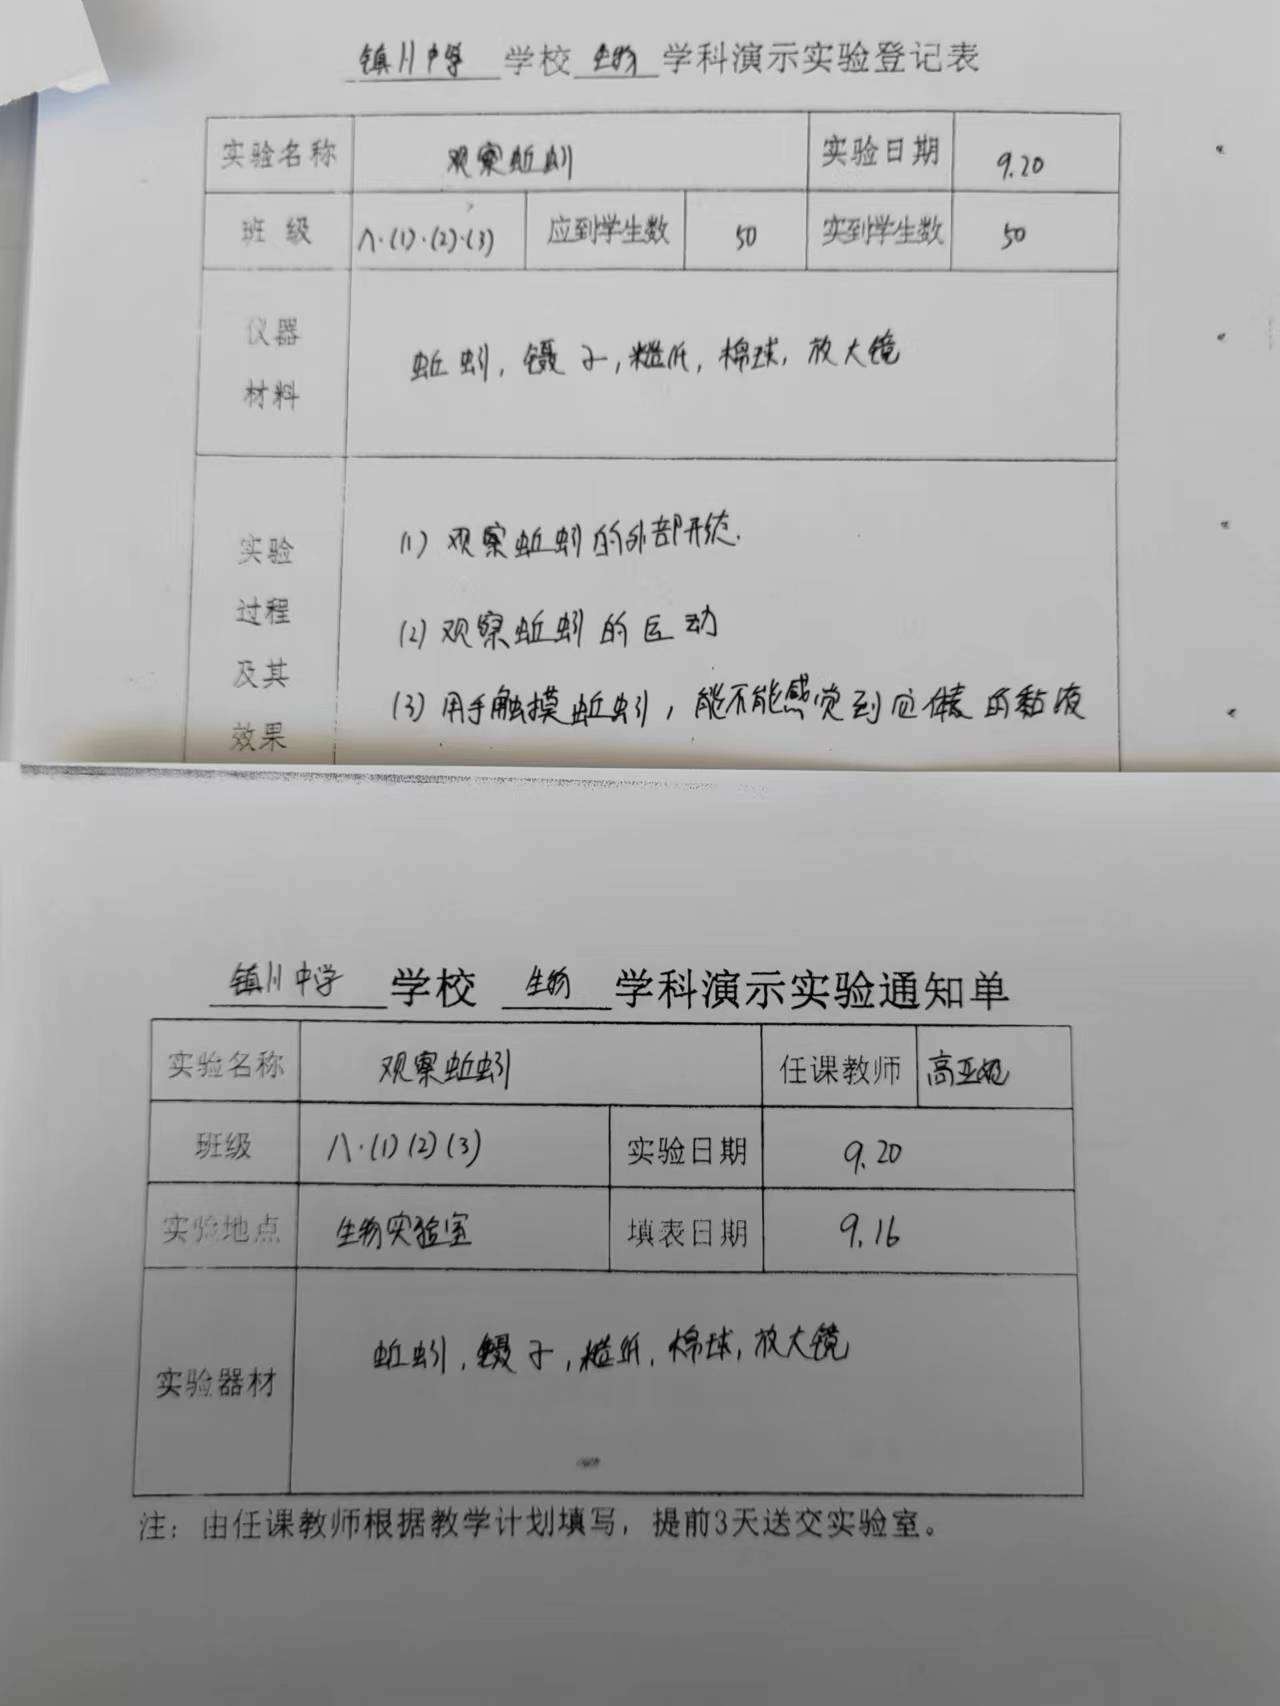 镇川中学 学校 生物 学科演示实验登记表
实验名称 观察蚯蚓 实验日期 9.20
班 级 八·(1)·(2)·(3) 应到学生数 50 实到学生数 50
仪器
材料
蚯蚓,镊子,糙纸,棉球,放大镜
实验
过程
及其
效果
(1) 观察蚯蚓的外部形态.
(2) 观察蚯蚓的运动
(3) 用手触摸蚯蚓,能不能感觉到 体表的黏液
镇川中学 学校 生物 学科演示实验通知单
实验名称 观察蚯蚓 任课教师 高亚妮
班级 八·(1)(2)(3) 实验日期 9.20
实验地点 生物实验室 填表日期 9.16
实验器材 蚯蚓,镊子,糙纸,棉球,放大镜
注：由任课教师根据教学计划填写，提前3天送交实验室。